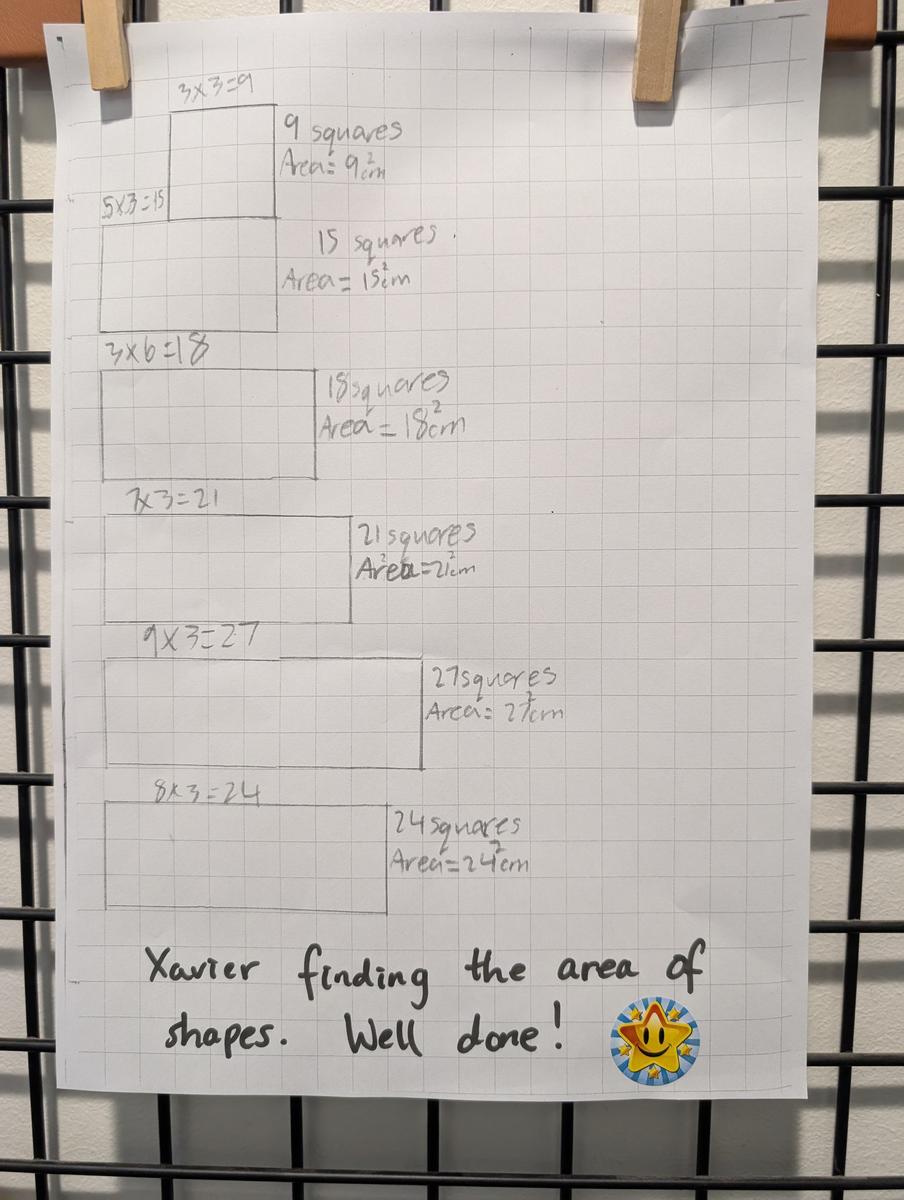 3x3=9
9 squares
Area = 9²cm
5x3=15
15 squares.
Area = 15²cm
3x6=18
18 squares
Area = 18²cm
7x3=21
21 squares
Area = 21²cm
9x3=27
27 squares
Area = 27²cm
8x3=24
24 squares
Area = 24²cm
Xavier finding the area of
shapes. Well done!